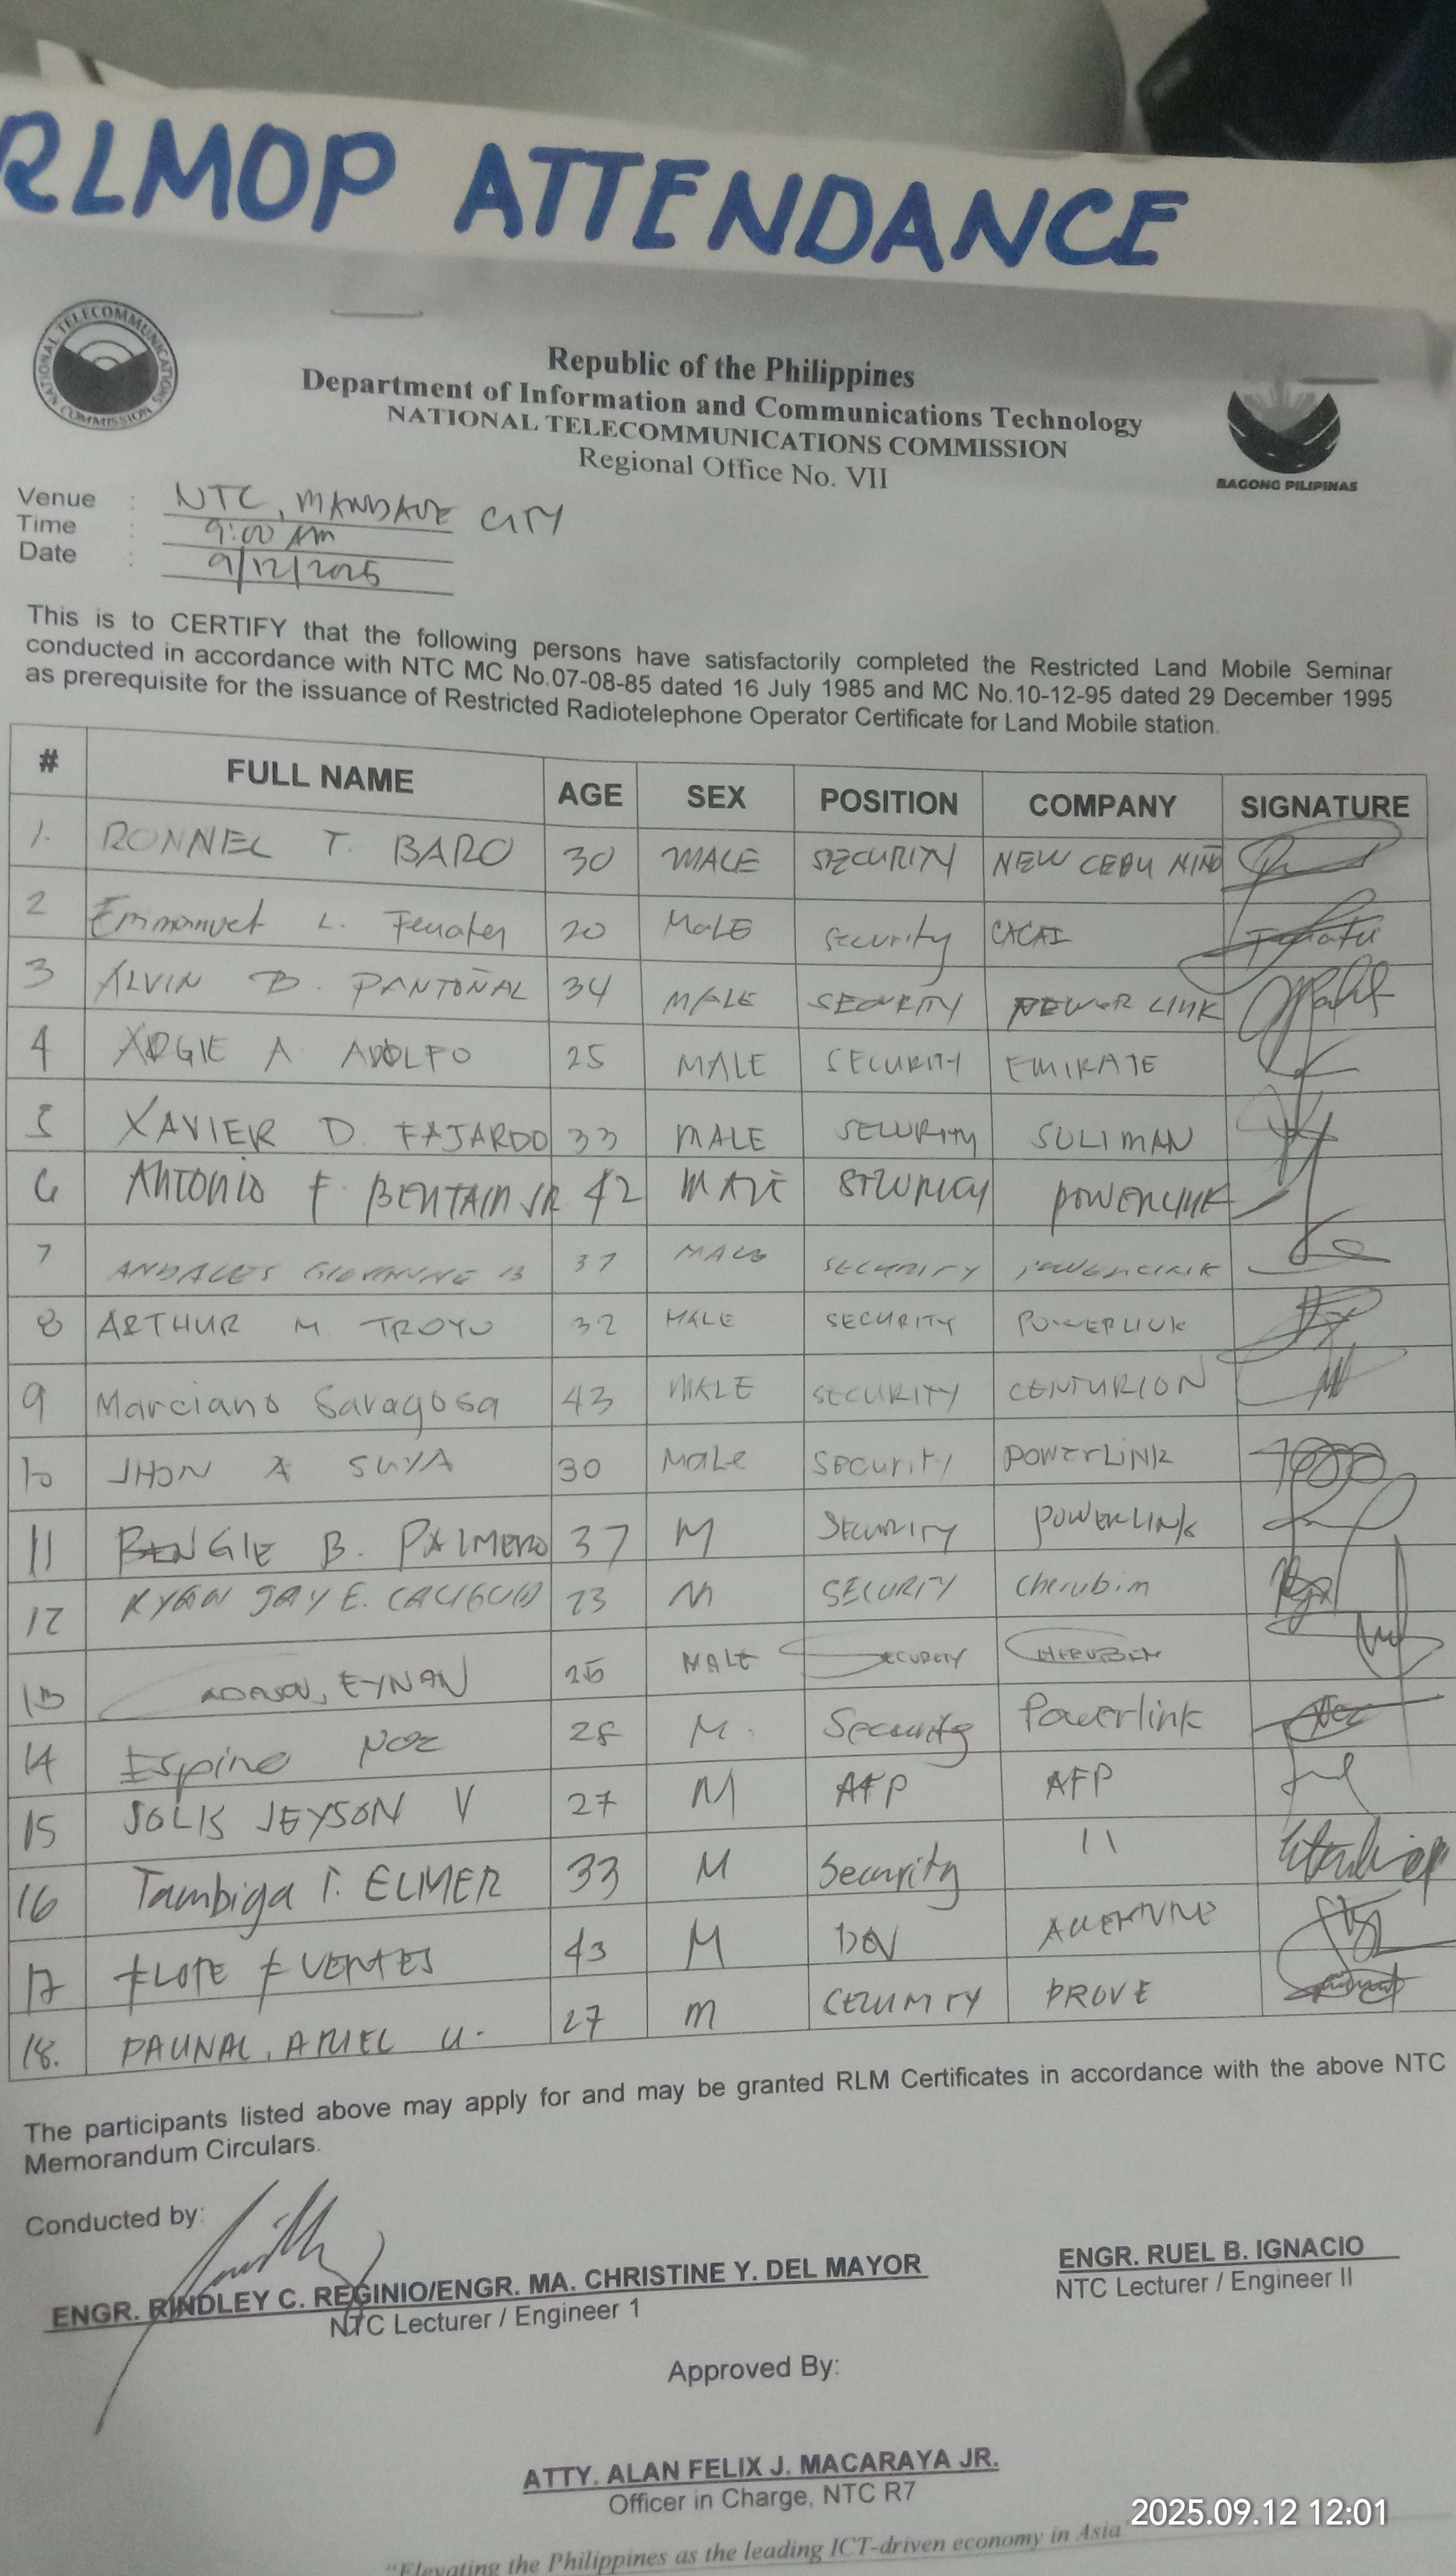 RLMOP ATTENDANCE
NATIONAL TELECOMMUNICATIONS COMMISSION
Republic of the Philippines
Department of Information and Communications Technology
NATIONAL TELECOMMUNICATIONS COMMISSION
Regional Office No. VII
BAGONG PILIPINAS
Venue : NTC, MANDAUE CITY
Time : 9:00 AM
Date : 9/12/2025
This is to CERTIFY that the following persons have satisfactorily completed the Restricted Land Mobile Seminar
conducted in accordance with NTC MC No.07-08-85 dated 16 July 1985 and MC No.10-12-95 dated 29 December 1995
as prerequisite for the issuance of Restricted Radiotelephone Operator Certificate for Land Mobile station.
# FULL NAME AGE SEX POSITION COMPANY SIGNATURE
1. RONNEL T. BARO 30 MALE SECURITY NEW CEBU
2 Emmanuel L. 20 MALE Security
3 ALVIN B. PANTOÑAL 34 MALE SECURITY LINK
4 ARGIE A ADOLFO 25 MALE SECURITY EMIRATE
5 XAVIER D. FAJARDO 33 MALE SECURITY SULIMAN
6 ANTONIO F. BENTAIN JR. 42 MALE POWERLINK
7 ANDALES B 37 MALE SECURITY
8 ARTHUR M. TROYO 32 MALE SECURITY POWERLINK
9 Marciano Saragosa 43 MALE SECURITY CENTURION
10 JHON A SUYA 30 Male Security POWERLINK
11 GIE B. PALMERO 37 M SECURITY POWERLINK
12 RYAN JAY E. 23 M SECURITY Cherubim
13 EYNAN MALE SECURITY
14 Espino NOE 28 M. Security Powerlink
15 SOLIS JEYSON V 27 M AFP AFP
16 Tambiga T. ELMER 33 M Security 11
17 FLOTE FUENTES 43 M
18. PAUNAL, ARIEL U. 27 M PROVE
The participants listed above may apply for and may be granted RLM Certificates in accordance with the above NTC
Memorandum Circulars.
Conducted by:
ENGR. RINDLEY C. REGINIO/ENGR. MA. CHRISTINE Y. DEL MAYOR
NTC Lecturer / Engineer 1
ENGR. RUEL B. IGNACIO
NTC Lecturer / Engineer II
Approved By:
ATTY. ALAN FELIX J. MACARAYA JR.
Officer in Charge, NTC R7
2025.09.12 12:01
"Elevating the Philippines as the leading ICT-driven economy in Asia